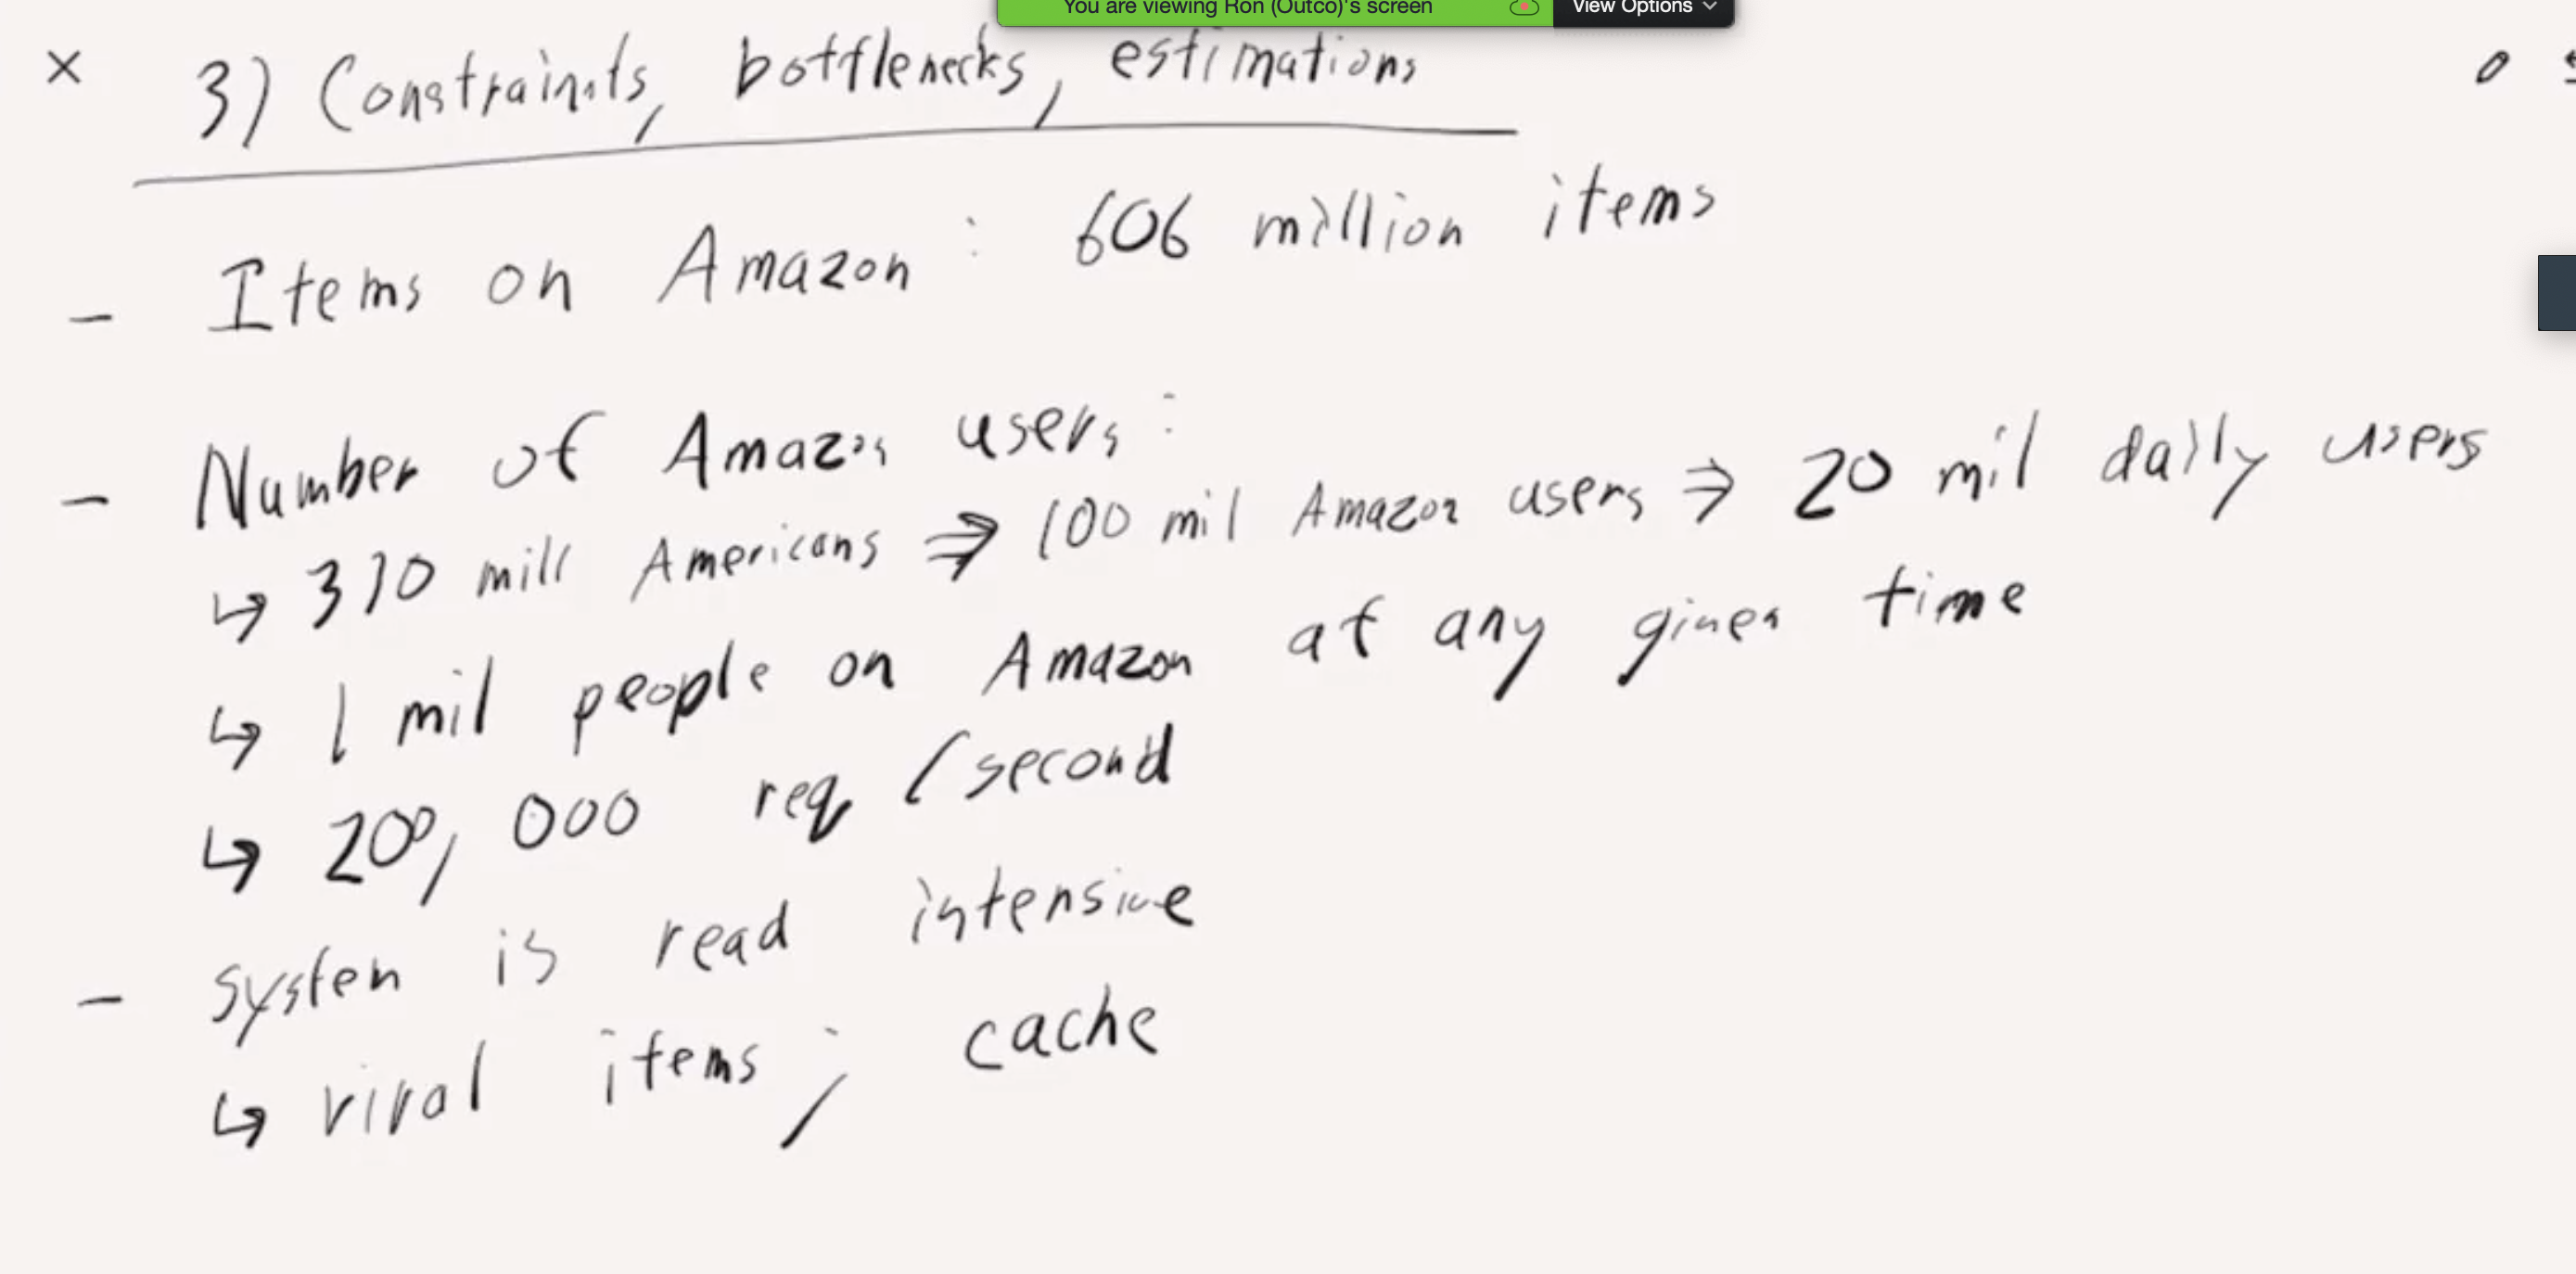 You are viewing Ron (Outco)'s screen
View Options
3) Constraints, bottlenecks, estimations
- Items on Amazon: 606 million items
- Number of Amazon users:
↳ 310 mill Americans ⇒ 100 mil Amazon users ⇒ 20 mil daily users
↳ 1 mil people on Amazon at any given time
↳ 200,000 req/second
- system is read intensive
↳ viral items; cache